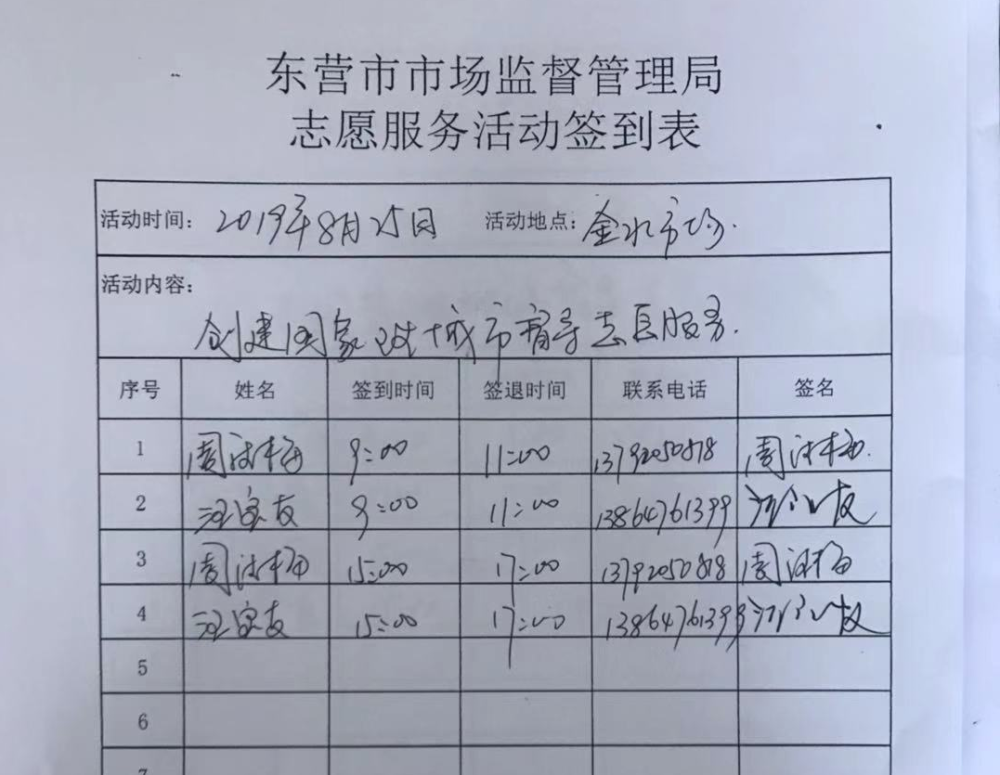 东营市市场监督管理局
志愿服务活动签到表
活动时间: 2019年8月25日 活动地点: 金水市场.
活动内容:
创建国家 城市督导志愿服务.
序号 姓名 签到时间 签退时间 联系电话 签名
1 周 梅 9:00 11:00 13792050818 周 梅
2 汪宝友 9:00 11:00 13864761399 汪宝友
3 周 梅 15:00 17:00 13792050818 周 梅
4 汪宝友 15:00 17:00 13864761399 汪宝友
5
6
7